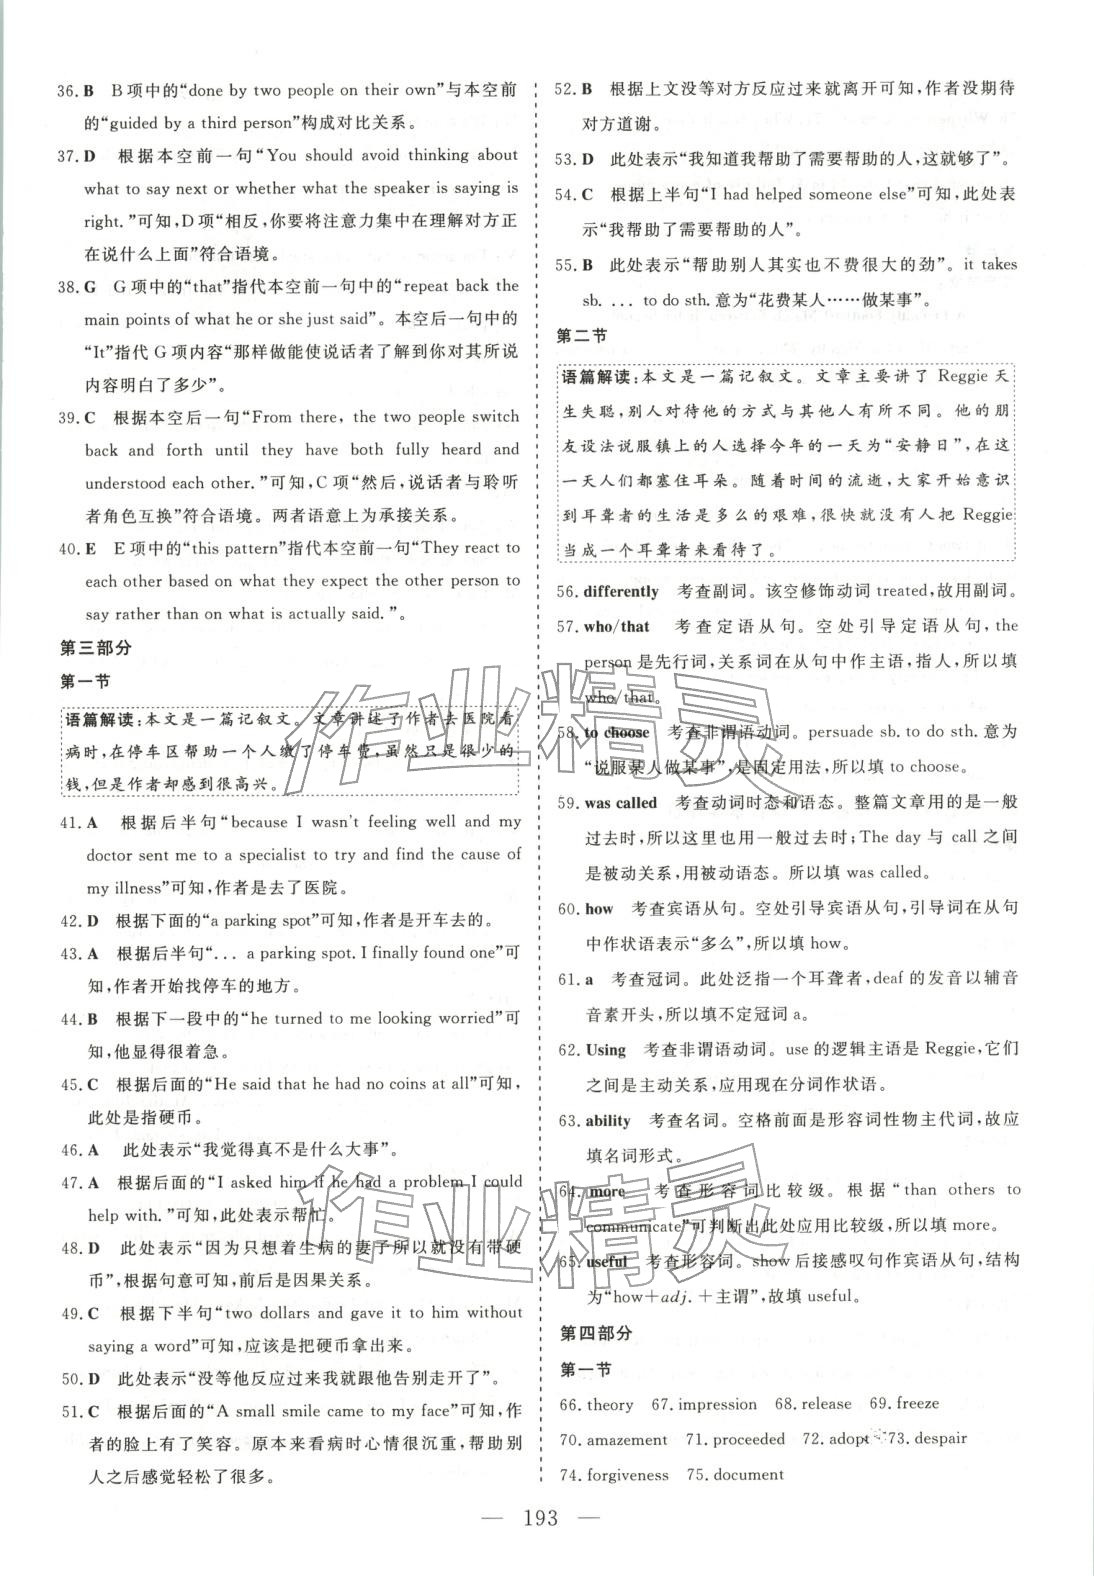 36. B　B项中的“done by two people on their own”与本空前
的“guided by a third person”构成对比关系。
37. D　根据本空前一句“You should avoid thinking about
what to say next or whether what the speaker is saying is
right.”可知,D项“相反,你要将注意力集中在理解对方正
在说什么上面”符合语境。
38. G　G项中的“that”指代本空前一句中的“repeat back the
main points of what he or she just said”。本空后一句中的
“It”指代G项内容“那样做能使说话者了解到你对其所说
内容明白了多少”。
39. C　根据本空后一句“From there, the two people switch
back and forth until they have both fully heard and
understood each other.”可知,C项“然后,说话者与聆听
者角色互换”符合语境。两者语意上为承接关系。
40. E　E项中的“this pattern”指代本空前一句“They react to
each other based on what they expect the other person to
say rather than on what is actually said.”。
第三部分
第一节
语篇解读:本文是一篇记叙文。文章讲述了作者去医院看
病时,在停车区帮助一个人缴了停车费,虽然只是很少的
钱,但是作者却感到很高兴。
41. A　根据后半句“because I wasn't feeling well and my
doctor sent me to a specialist to try and find the cause of
my illness”可知,作者是去了医院。
42. D　根据下面的“a parking spot”可知,作者是开车去的。
43. A　根据后半句“... a parking spot. I finally found one”可
知,作者开始找停车的地方。
44. B　根据下一段中的“he turned to me looking worried”可
知,他显得很着急。
45. C　根据后面的“He said that he had no coins at all”可知,
此处是指硬币。
46. A　此处表示“我觉得真不是什么大事”。
47. A　根据后面的“I asked him if he had a problem I could
help with.”可知,此处表示帮忙。
48. D　此处表示“因为只想着生病的妻子所以就没有带硬
币”,根据句意可知,前后是因果关系。
49. C　根据下半句“two dollars and gave it to him without
saying a word”可知,应该是把硬币拿出来。
50. D　此处表示“没等他反应过来我就跟他告别走开了”。
51. C　根据后面的“A small smile came to my face”可知,作
者的脸上有了笑容。原本来看病时心情很沉重,帮助别
人之后感觉轻松了很多。
52. B　根据上文没等对方反应过来就离开可知,作者没期待
对方道谢。
53. D　此处表示“我知道我帮助了需要帮助的人,这就够了”。
54. C　根据上半句“I had helped someone else”可知,此处表
示“我帮助了需要帮助的人”。
55. B　此处表示“帮助别人其实也不费很大的劲”。it takes
sb. ... to do sth.意为“花费某人……做某事”。
第二节
语篇解读:本文是一篇记叙文。文章主要讲了 Reggie 天
生失聪,别人对待他的方式与其他人有所不同。他的朋
友设法说服镇上的人选择今年的一天为“安静日”,在这
一天人们都塞住耳朵。随着时间的流逝,大家开始意识
到耳聋者的生活是多么的艰难,很快就没有人把 Reggie
当成一个耳聋者来看待了。
56. differently　考查副词。该空修饰动词 treated,故用副词。
57. who/that　考查定语从句。空处引导定语从句,the
person 是先行词,关系词在从句中作主语,指人,所以填
who/that。
58. to choose　考查非谓语动词。persuade sb. to do sth.意为
“说服某人做某事”,是固定用法,所以填 to choose。
59. was called　考查动词时态和语态。整篇文章用的是一般
过去时,所以这里也用一般过去时;The day 与 call 之间
是被动关系,用被动语态。所以填 was called。
60. how　考查宾语从句。空处引导宾语从句,引导词在从句
中作状语表示“多么”,所以填 how。
61. a　考查冠词。此处泛指一个耳聋者,deaf 的发音以辅音
音素开头,所以填不定冠词 a。
62. Using　考查非谓语动词。use 的逻辑主语是 Reggie,它们
之间是主动关系,应用现在分词作状语。
63. ability　考查名词。空格前面是形容词性物主代词,故应
填名词形式。
64. more　考查形容词比较级。根据“than others to
communicate”可判断出此处应用比较级,所以填 more。
65. useful　考查形容词。show 后接感叹句作宾语从句,结构
为“how+adj.+主谓”,故填 useful。
第四部分
第一节
66. theory　67. impression　68. release　69. freeze
70. amazement　71. proceeded　72. adopt　73. despair
74. forgiveness　75. document
— 193 —
作业精灵
作业精灵